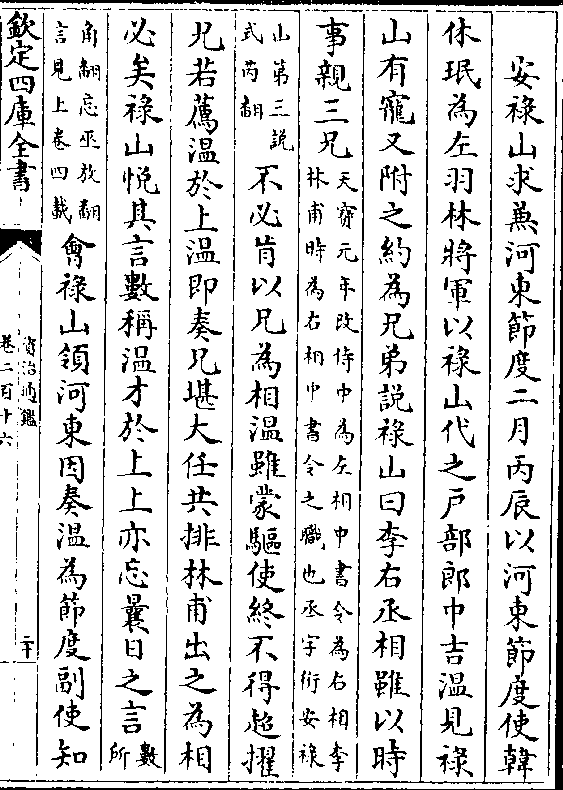 安祿山求兼河東節度二月丙辰以河東節度使韓
休珉為左羽林將軍以祿山代之戸部郎中吉温見祿
山有寵又附之約為兄弟説祿山曰李右丞相雖以時
事親三兄天寶元年改侍中為左相中書令為右相李
林甫時為右相中書令之職也丞字衍安祿
山第三説
式芮翻不必肯以兄為相温雖蒙驅使終不得超擢
兄若薦温於上温即奏兄堪大任共排林甫出之為相
必矣祿山悦其言數稱温才於上上亦忘曩日之言數
所
角翻忘巫放翻
言見上卷四載會祿山領河東因奏温為節度副使知
欽定四庫全書
資治通鑑
卷二百十六
二十